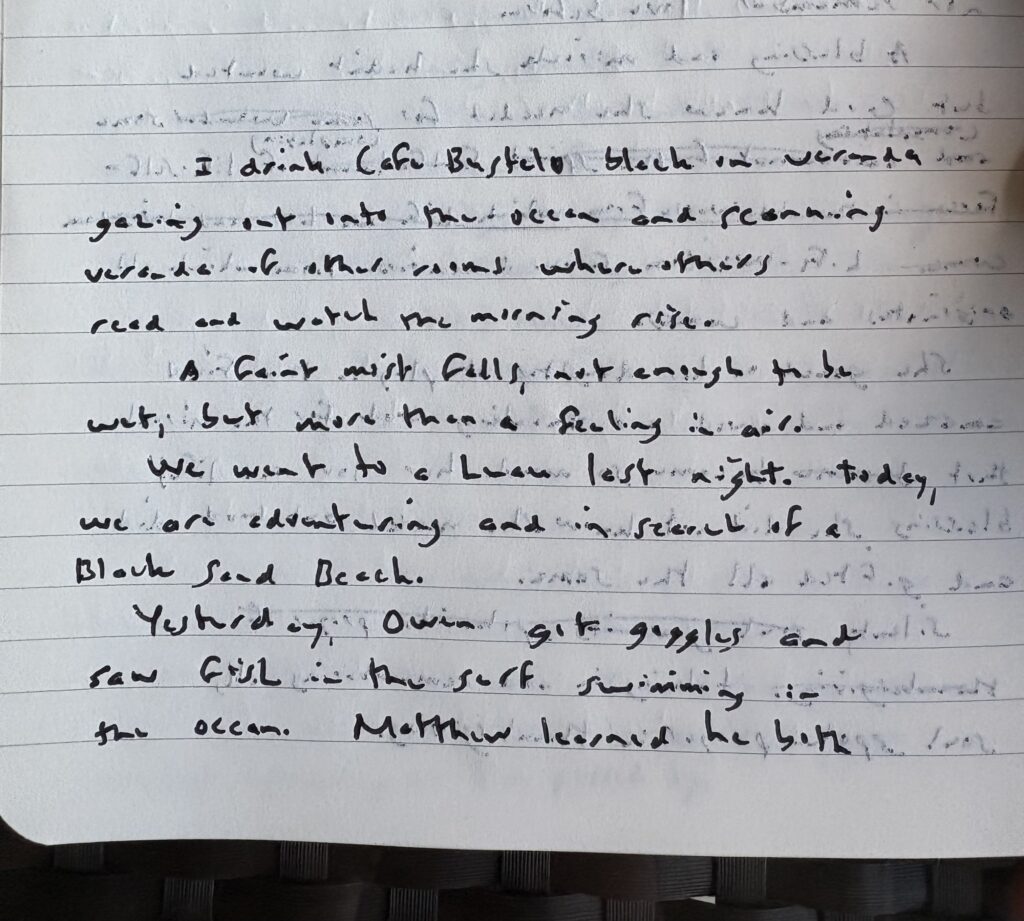 I drink Cafe Bustelo black on veranda
gazing out into the ocean and scanning
veranda of other rooms where others
read and watch the morning rise.
A faint mist falls, not enough to be
wet, but more than a feeling in air.
We went to a Luau last night. Today,
we are adventuring and in search of a
Black Sand Beach.
Yesterday, Owen got giggles and
saw fish in the surf. Swimming in
the ocean. Matthew learned he both